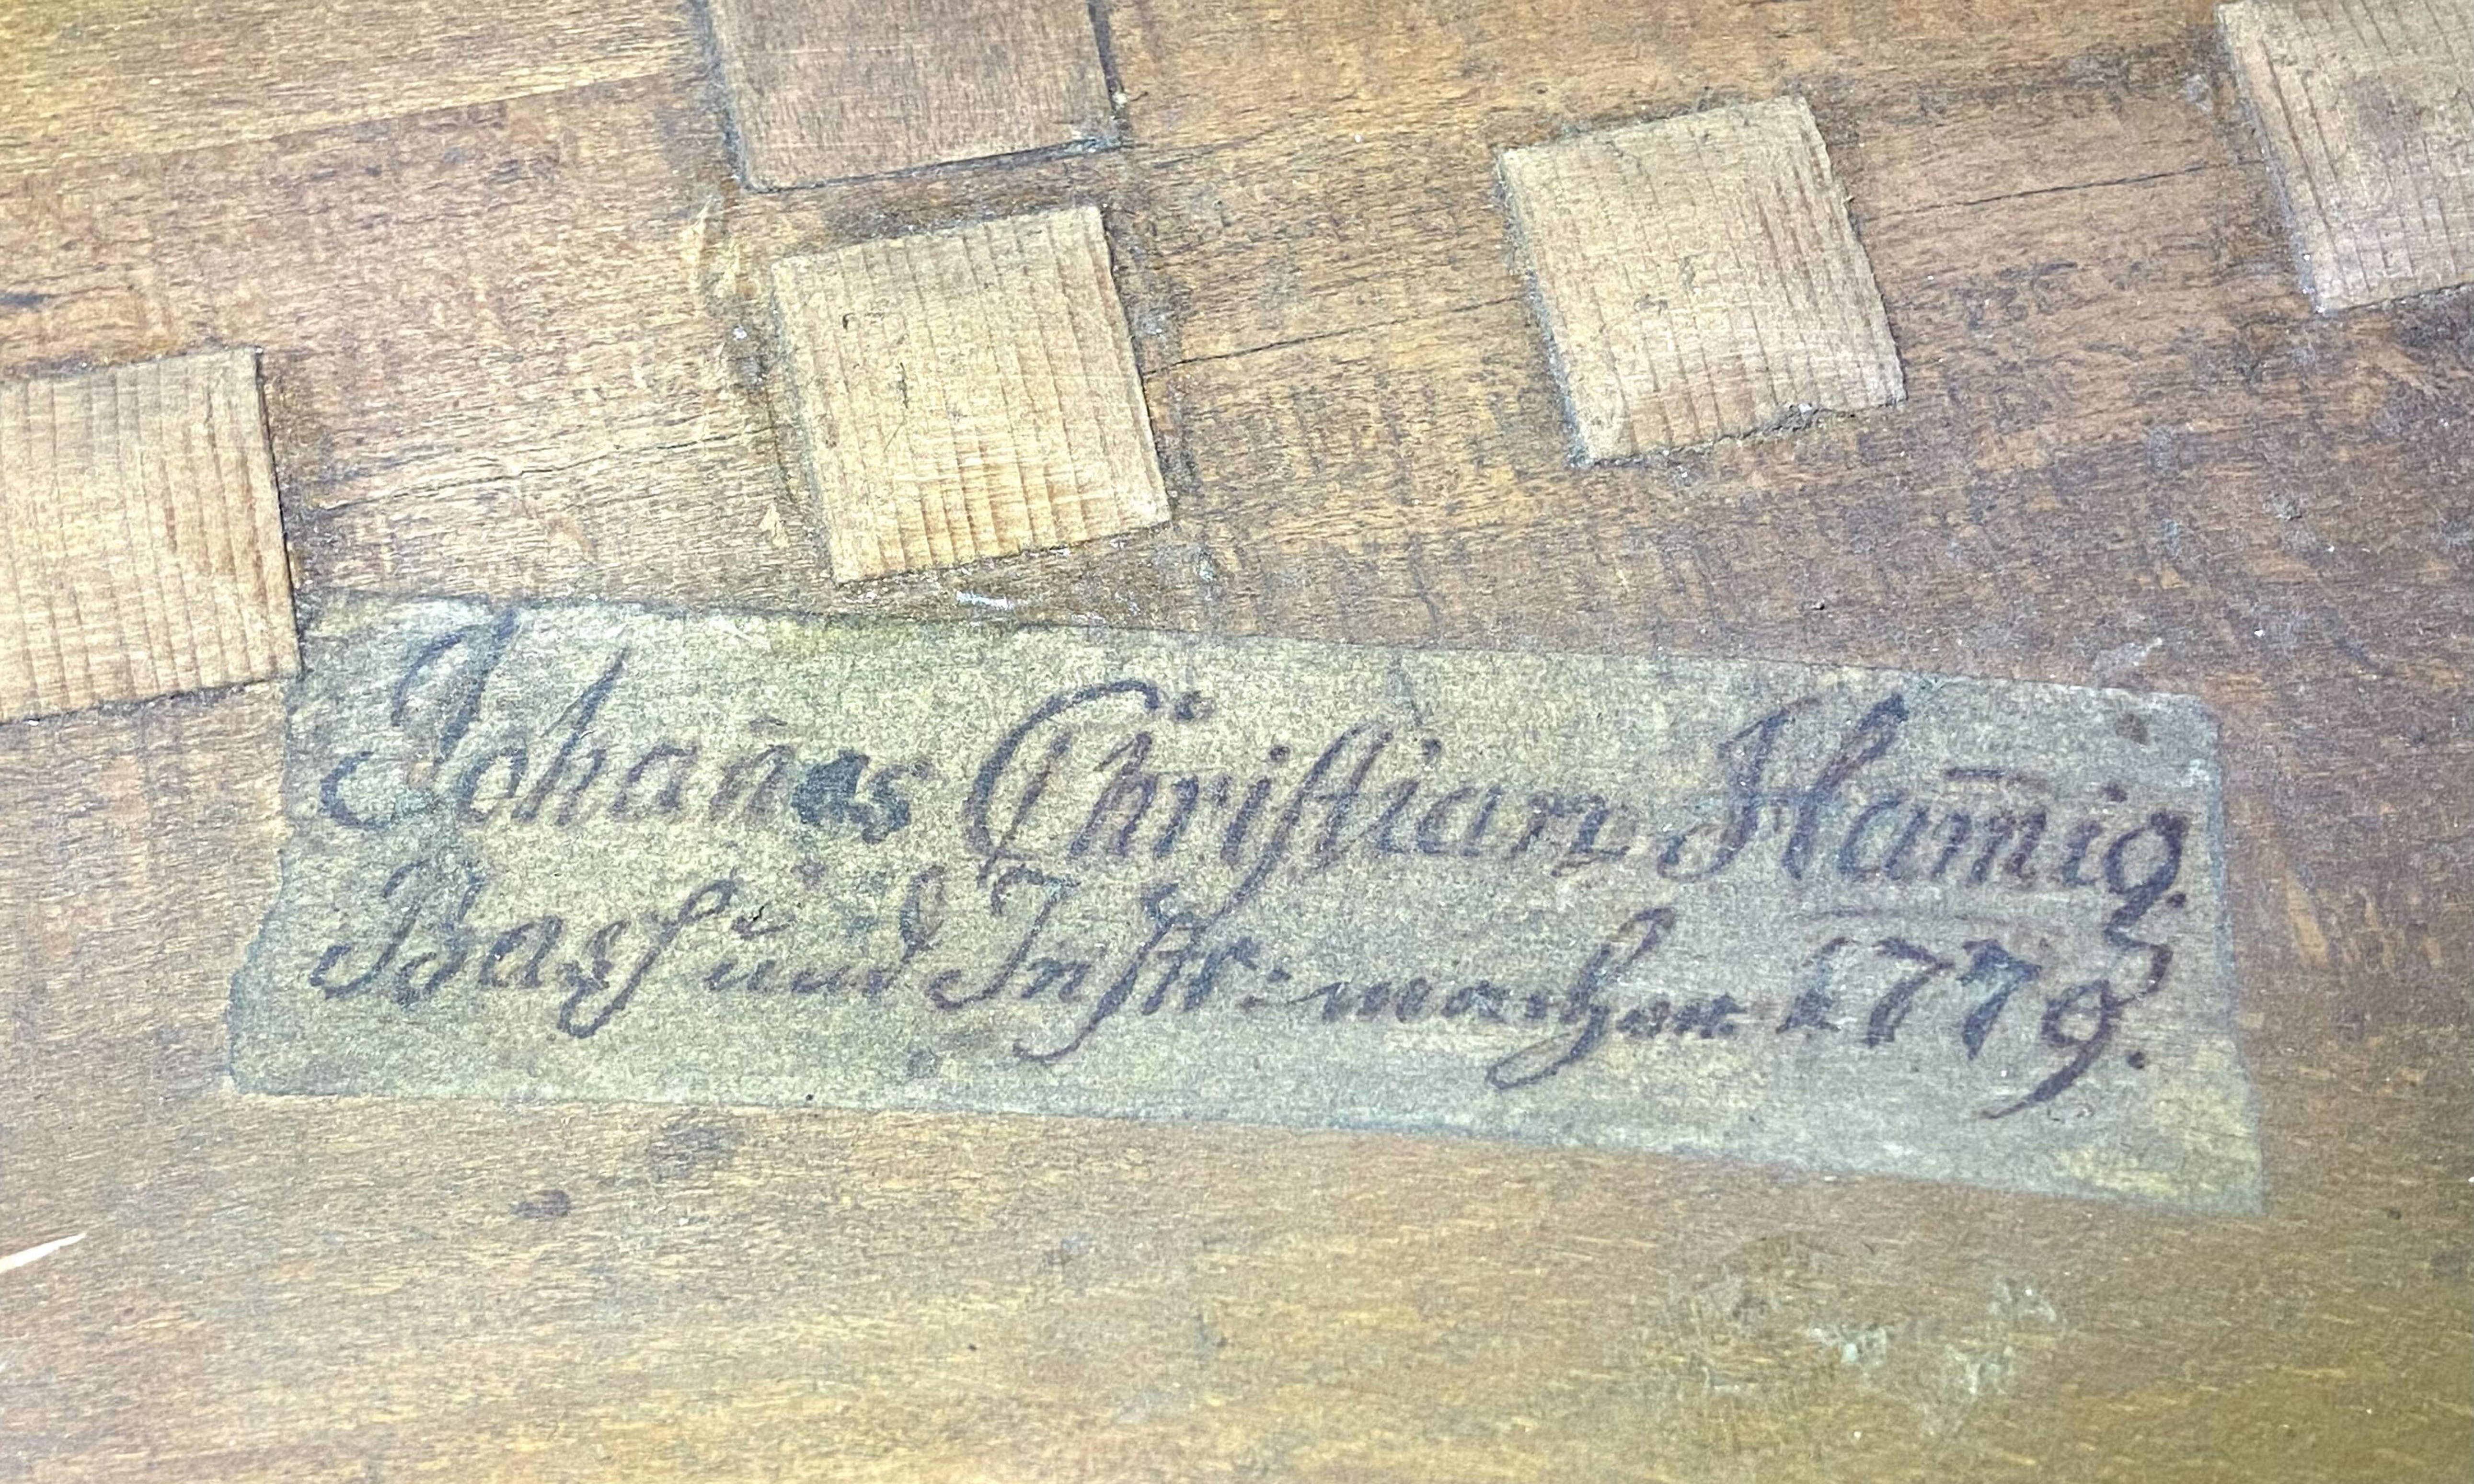 Johan̄es Chriſtian Ham̄ig.
Baſs und Inſtr: macher 1779.